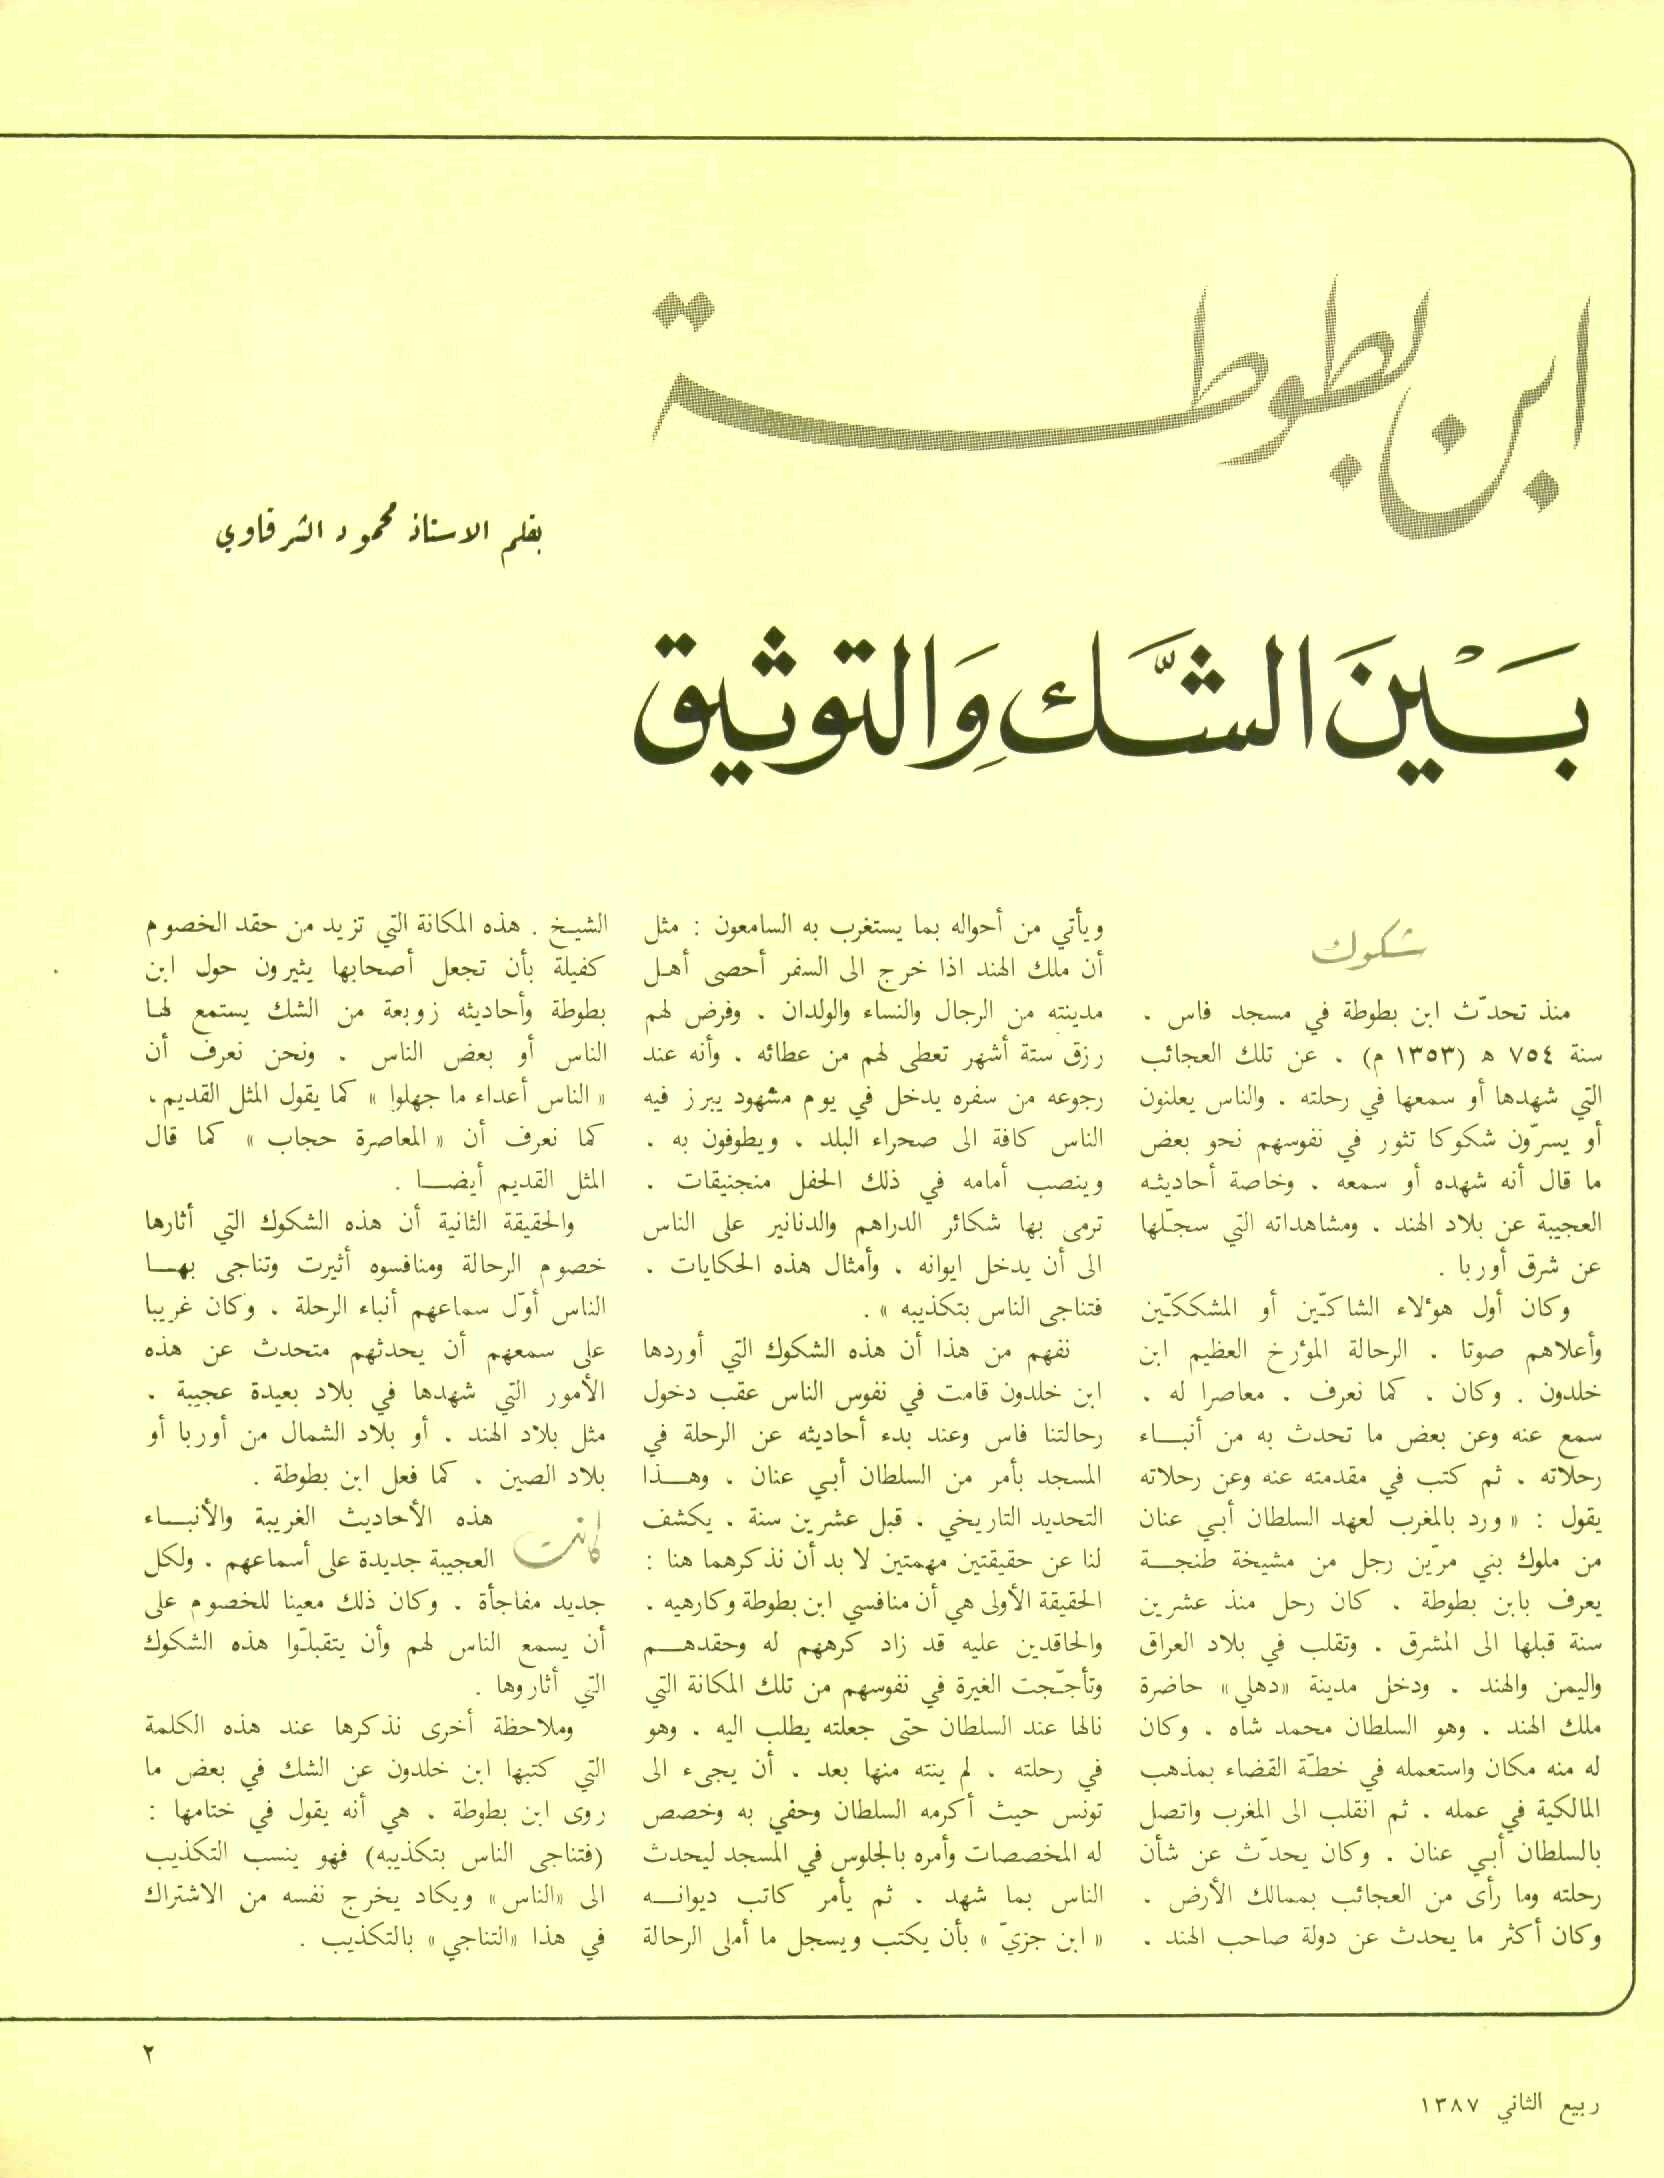 ابن بطوطة
بقلم الاستاذ محمود الشرقاوي
بَيْنَ الشَّكِ وَالتوثيق
شكوك
منذ تحدّث ابن بطوطة في مسجد فاس .
سنة ٧٥٤ ه (١٣٥٣ م) . عن تلك العجائب
التي شهدها أو سمعها في رحلته . والناس يعلنون
أو يسرّون شكوكا تثور في نفوسهم نحو بعض
ما قال أنه شهده أو سمعه . وخاصة أحاديثه
العجيبة عن بلاد الهند . ومشاهداته التي سجّلها
عن شرق أوربا .
وكان أول هؤلاء الشاكّين أو المشككّين
وأعلاهم صوتا . الرحالة المؤرخ العظيم ابن
خلدون . وكان . كما نعرف . معاصرا له .
سمع عنه وعن بعض ما تحدث به من أنباء
رحلاته . ثم كتب في مقدمته عنه وعن رحلاته
يقول : « ورد بالمغرب لعهد السلطان أبي عنان
من ملوك بني مرّين رجل من مشيخة طنجة
يعرف بابن بطوطة . كان رحل منذ عشرين
سنة قبلها الى المشرق . وتقلب في بلاد العراق
واليمن والهند . ودخل مدينة «دهلي» حاضرة
ملك الهند . وهو السلطان محمد شاه . وكان
له منه مكان واستعمله في خطّة القضاء بمذهب
المالكية في عمله . ثم انقلب الى المغرب واتصل
بالسلطان أبي عنان . وكان يحدّث عن شأن
رحلته وما رأى من العجائب بممالك الأرض .
وكان أكثر ما يحدث عن دولة صاحب الهند .
ويأتي من أحواله بما يستغرب به السامعون : مثل
أن ملك الهند اذا خرج الى السفر أحصى أهل
مدينته من الرجال والنساء والولدان . وفرض لهم
رزق ستة أشهر تعطى لهم من عطائه . وأنه عند
رجوعه من سفره يدخل في يوم مشهود يبرز فيه
الناس كافة الى صحراء البلد . ويطوفون به .
وينصب أمامه في ذلك الحفل منجنيقات .
ترمى بها شكائر الدراهم والدنانير على الناس
الى أن يدخل ايوانه . وأمثال هذه الحكايات .
فتناجى الناس بتكذيبه » .
نفهم من هذا أن هذه الشكوك التي أوردها
ابن خلدون قامت في نفوس الناس عقب دخول
رحالتنا فاس وعند بدء أحاديثه عن الرحلة في
المسجد بأمر من السلطان أبي عنان . وهذا
التحديد التاريخي . قبل عشرين سنة . يكشف
لنا عن حقيقتين مهمتين لا بد أن نذكرهما هنا :
الحقيقة الأولى هي أن منافسي ابن بطوطة وكارهيه .
والحاقدين عليه قد زاد كرههم له وحقدهم
وتأجّجت الغيرة في نفوسهم من تلك المكانة التي
نالها عند السلطان حتى جعلته يطلب اليه . وهو
في رحلته . لم ينته منها بعد . أن يجيء الى
تونس حيث أكرمه السلطان وحفي به وخصص
له المخصصات وأمره بالجلوس في المسجد ليحدث
الناس بما شهد . ثم يأمر كاتب ديوانه
« ابن جزيّ » بأن يكتب ويسجل ما أملى الرحالة
الشيخ . هذه المكانة التي تزيد من حقد الخصوم
كفيلة بأن تجعل أصحابها يثيرون حول ابن
بطوطة وأحاديثه زوبعة من الشك يستمع لها
الناس أو بعض الناس . ونحن نعرف أن
« الناس أعداء ما جهلوا » كما يقول المثل القديم .
كما نعرف أن « المعاصرة حجاب » كما قال
المثل القديم أيضا .
والحقيقة الثانية أن هذه الشكوك التي أثارها
خصوم الرحالة ومنافسوه أثيرت وتناجى بها
الناس أوّل سماعهم أنباء الرحلة . وكان غريبا
على سمعهم أن يحدثهم متحدث عن هذه
الأمور التي شهدها في بلاد بعيدة عجيبة .
مثل بلاد الهند . أو بلاد الشمال من أوربا أو
بلاد الصين . كما فعل ابن بطوطة .
كانت هذه الأحاديث الغريبة والأنباء
العجيبة جديدة على أسماعهم . ولكل
جديد مفاجأة . وكان ذلك معينا للخصوم على
أن يسمع الناس لهم وأن يتقبلّوا هذه الشكوك
التي أثاروها .
وملاحظة أخرى نذكرها عند هذه الكلمة
التي كتبها ابن خلدون عن الشك في بعض ما
روى ابن بطوطة . هي أنه يقول في ختامها :
(فتناجى الناس بتكذيبه) فهو ينسب التكذيب
الى «الناس» ويكاد يخرج نفسه من الاشتراك
في هذا «التناجي» بالتكذيب .
٢
ربيع الثاني ١٣٨٧